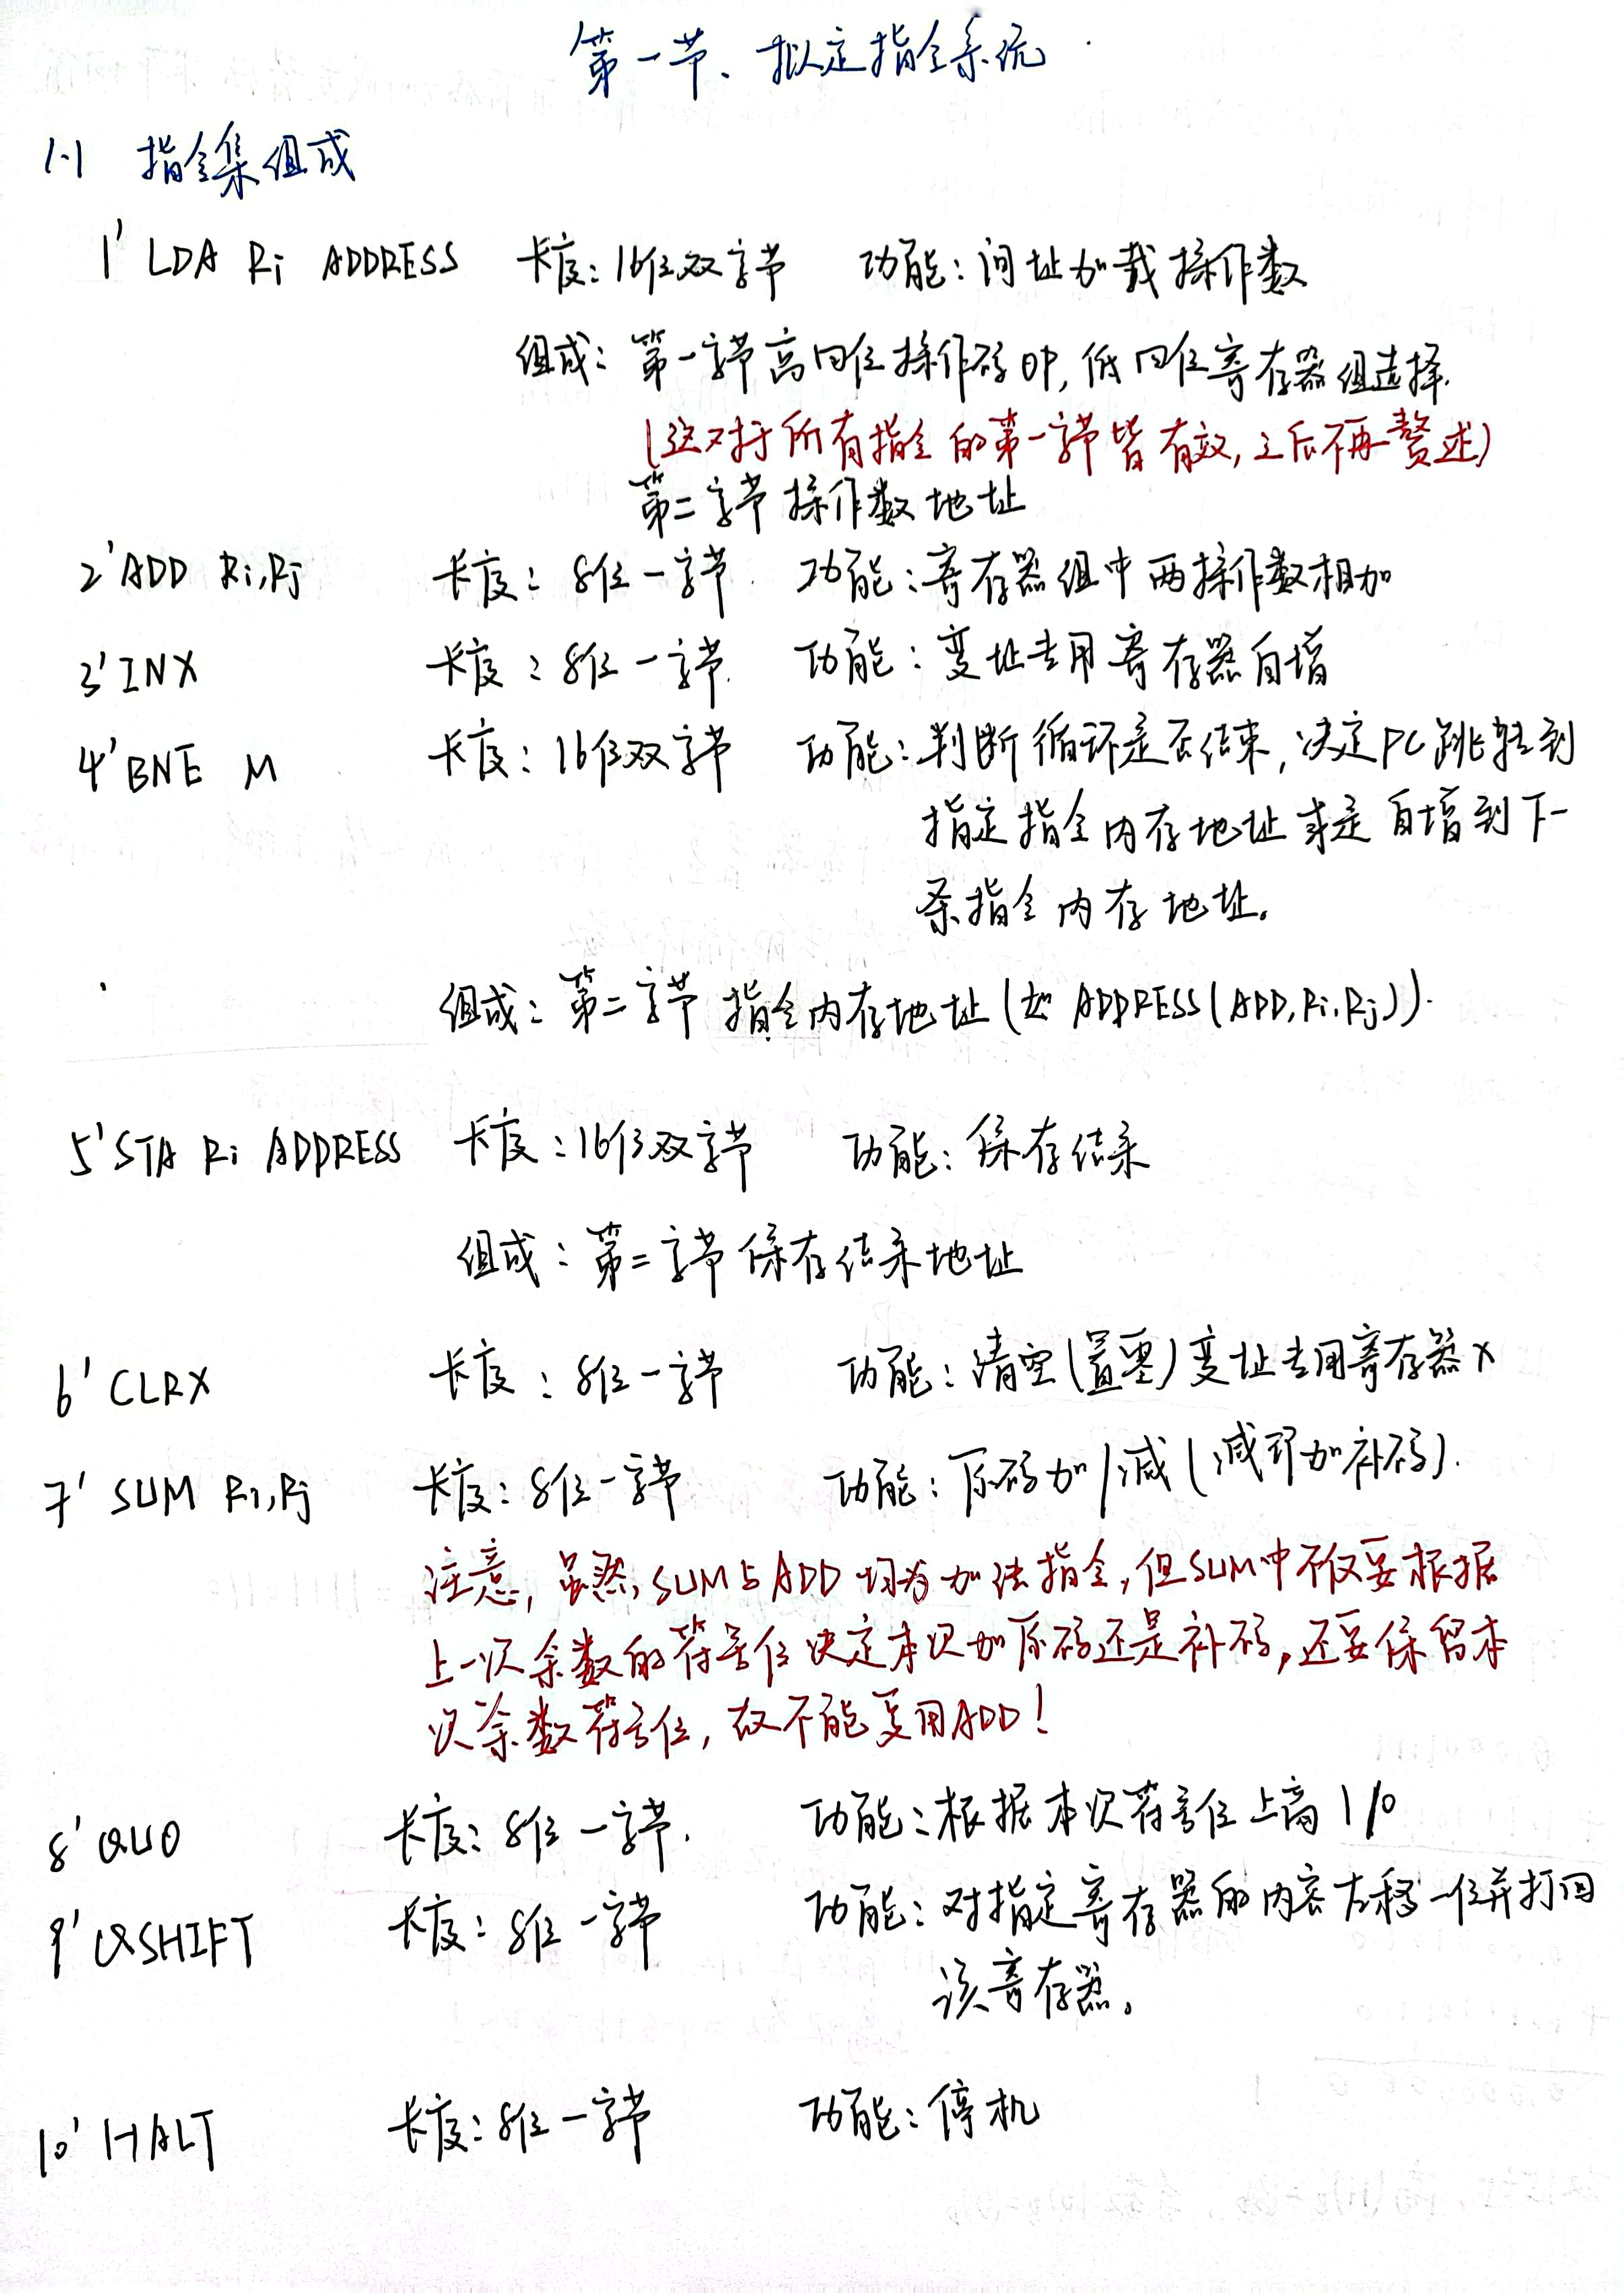 第一节、拟定指令系统
1.1 指令集组成
1' LDA Ri ADDRESS 长度：16位双字节 功能：间址加载操作数
组成：第一字节高四位操作码OP，低四位寄存器组选择.
(这对于所有指令的第一字节皆有效，之后不再赘述)
第二字节操作数地址
2' ADD Ri,Rj 长度：8位一字节. 功能：寄存器组中两操作数相加
3' INX 长度：8位一字节. 功能：变址专用寄存器自增
4' BNE M 长度：16位双字节 功能：判断循环是否结束，决定PC跳转到
指定指令内存地址或是自增到下一
条指令内存地址。
组成：第二字节 指令内存地址(如 ADDRESS(ADD,Ri,Rj)).
5' STA Ri ADDRESS 长度：16位双字节 功能：保存结果
组成：第二字节保存结果地址
6' CLRX 长度：8位一字节 功能：清空(置零)变址专用寄存器X
7' SUM Ri,Rj 长度：8位一字节 功能：原码加/减(减即加补码).
注意，虽然，SUM与ADD均为加法指令，但SUM中不仅要根据
上一次余数的符号位决定本次加原码还是补码，还要保留本
次余数符号位，故不能复用ADD！
8' QUO 长度：8位一字节. 功能：根据本次符号位上商1/0
9' QSHIFT 长度：8位一字节 功能：对指定寄存器的内容左移一位并打回
该寄存器。
10' HALT 长度：8位一字节 功能：停机